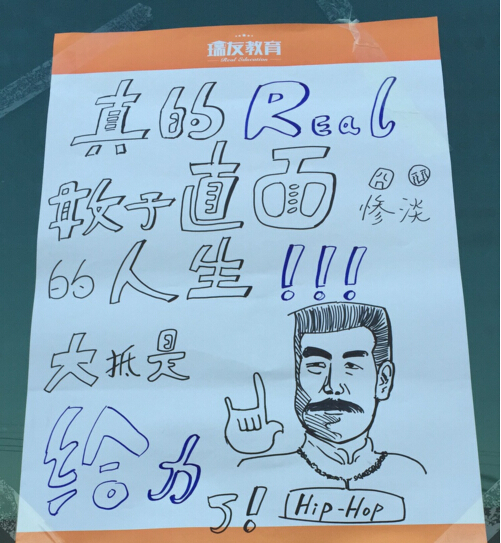 瑞友教育
Real Education
真的Real
敢于直面惨淡
的人生!!!
大抵是
给力了!
Hip-Hop